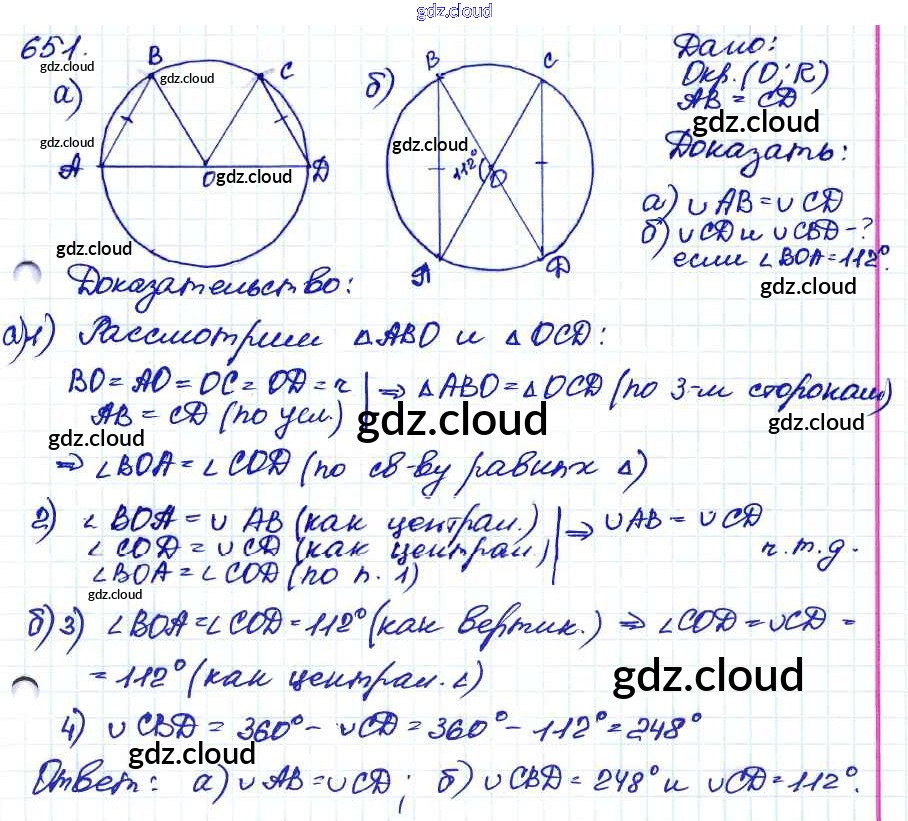 gdz.cloud
651.
gdz.cloud
а)
B
C
gdz.cloud
A
O
D
gdz.cloud
gdz.cloud
gdz.cloud
б)
B
C
gdz.cloud
112°
O
A
D
Дано:
Окр. (O; R)
AB = CD
gdz.cloud
Доказать:
а) ∪ AB = ∪ CD
б) ∪ CD и ∪ CBD - ?
если ∠BOA = 112°.
gdz.cloud
Доказательство:
а) 1) Рассмотрим △ABO и △OCD:
BO = AO = OC = OD = r | ⇒ △ABO = △OCD (по 3-м сторонам)
AB = CD (по усл.)
gdz.cloud gdz.cloud gdz.cloud
⇒ ∠BOA = ∠COD (по св-ву равных △)
2) ∠BOA = ∪ AB (как централ.) | ⇒ ∪AB = ∪CD
∠COD = ∪CD (как централ.)
ч.т.д.
∠BOA = ∠COD (по п. 1)
gdz.cloud
б) 3) ∠BOA = ∠COD = 112° (как вертик.) ⇒ ∠COD = ∪CD =
= 112° (как централ. ∠)
gdz.cloud
4) ∪ CBD = 360° - ∪CD = 360° - 112° = 248°
gdz.cloud
Ответ: а) ∪AB = ∪CD; б) ∪CBD = 248° и ∪CD = 112°.